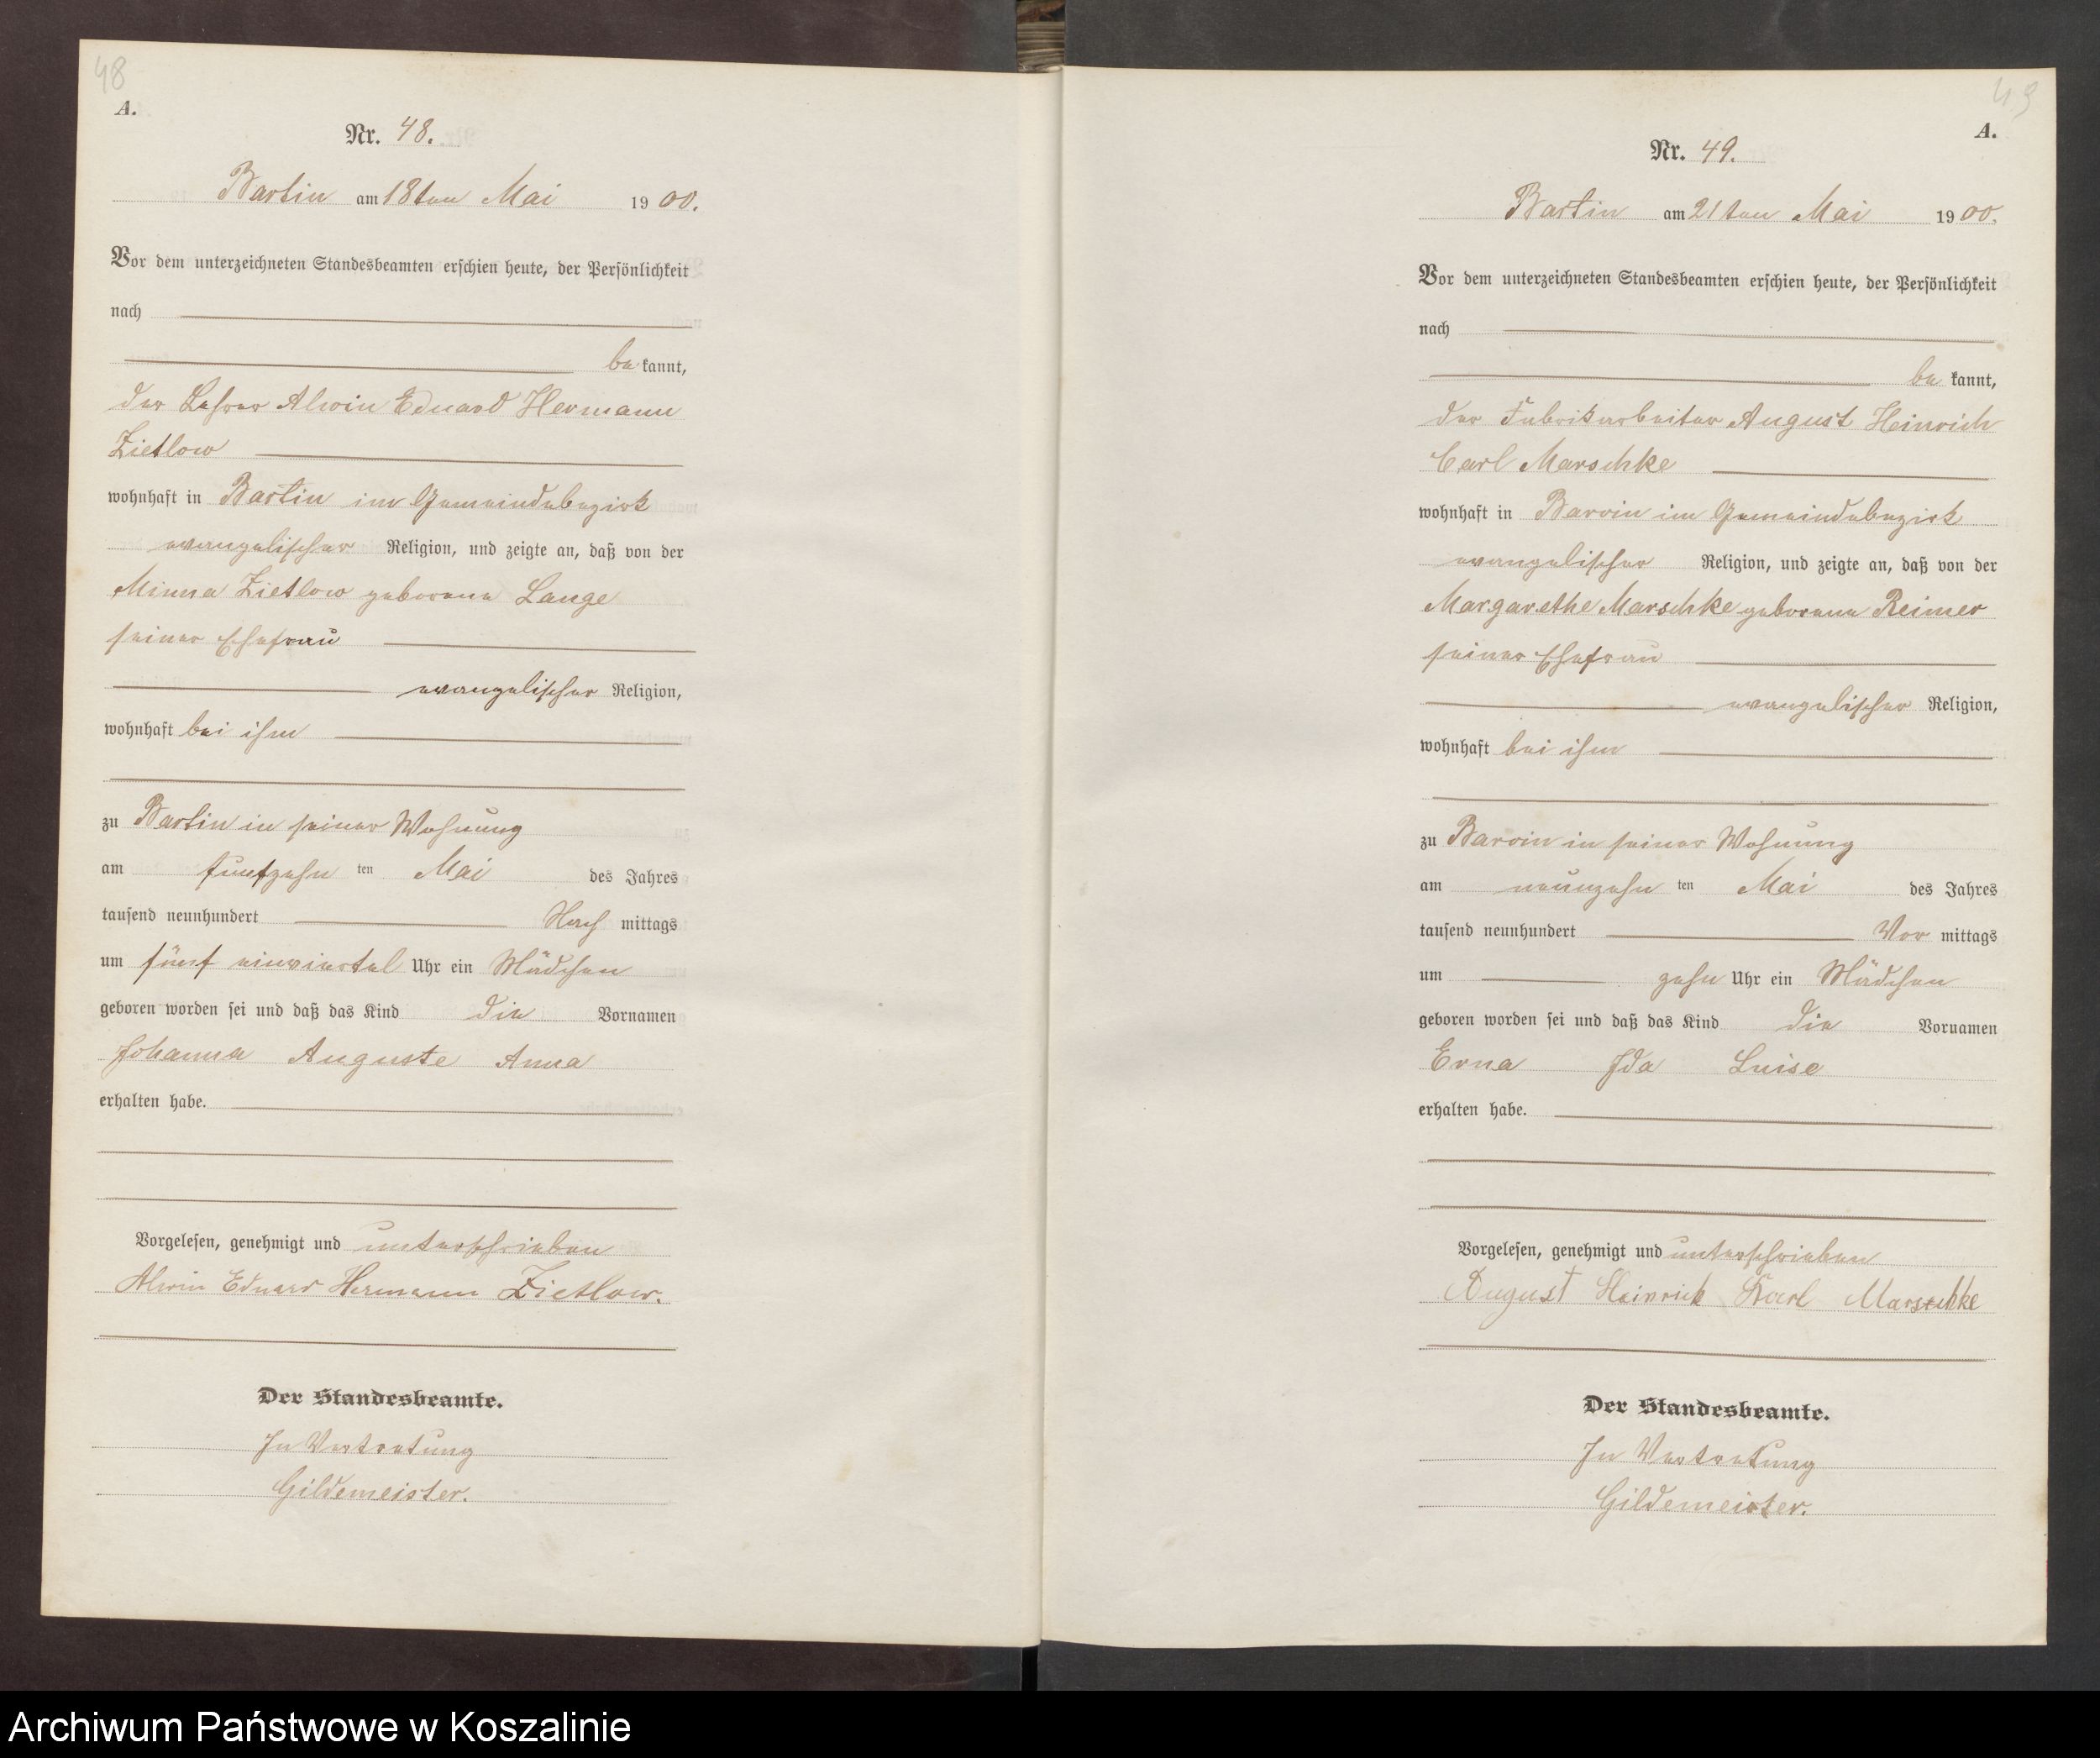 48
A.
Nr. 48.
Bartin am 18ten Mai 1900.
Vor dem unterzeichneten Standesbeamten erschien heute, der Persönlichkeit
nach
be kannt,
der Lehrer Alwin Eduard Hermann
Zietlow
wohnhaft in Bartin im Gemeindebezirk
evangelischer Religion, und zeigte an, daß von der
Minna Zietlow geborene Lange
seiner Ehefrau
evangelischer Religion,
wohnhaft bei ihm
zu Bartin in seiner Wohnung
am funfzehn ten Mai des Jahres
tausend neunhundert Nach mittags
um fünf einviertel Uhr ein Mädchen
geboren worden sei und daß das Kind die Vornamen
Johanna Auguste Anna
erhalten habe.
Vorgelesen, genehmigt und unterschrieben
Alwin Eduard Hermann Zietlow.
Der Standesbeamte.
In Vertretung
Gildemeister.
49
A.
Nr. 49.
Bartin am 21ten Mai 1900.
Vor dem unterzeichneten Standesbeamten erschien heute, der Persönlichkeit
nach
be kannt,
der Fabrikarbeiter August Heinrich
Carl Marschke
wohnhaft in Barvin im Gemeindebezirk
evangelischer Religion, und zeigte an, daß von der
Margarethe Marschke geborene Reimer
seiner Ehefrau
evangelischer Religion,
wohnhaft bei ihm
zu Barvin in seiner Wohnung
am neunzehn ten Mai des Jahres
tausend neunhundert Vor mittags
um zehn Uhr ein Mädchen
geboren worden sei und daß das Kind die Vornamen
Erna Ida Luise
erhalten habe.
Vorgelesen, genehmigt und unterschrieben
August Heinrich Karl Marschke
Der Standesbeamte.
In Vertretung
Gildemeister.
Archiwum Państwowe w Koszalinie